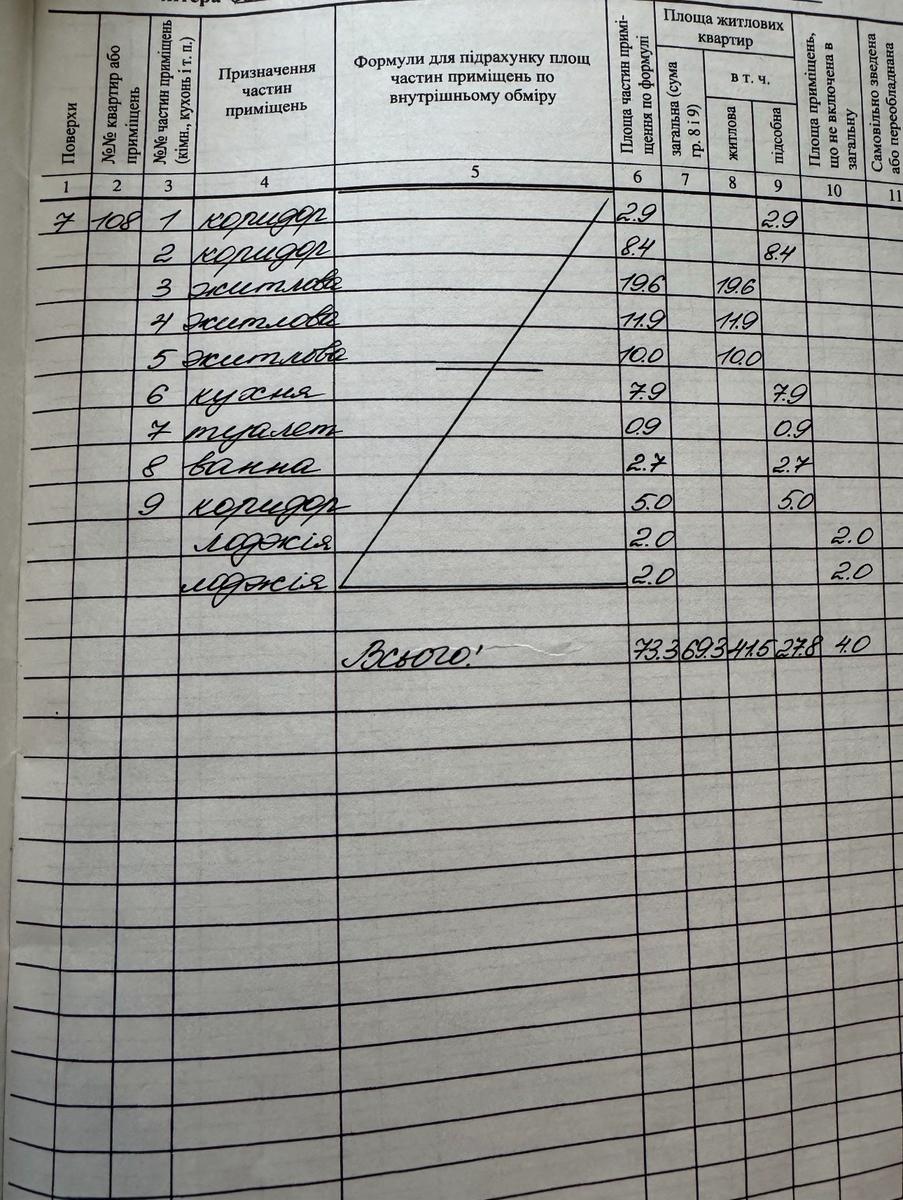 Поверхи
№№ квартир або приміщень
№№ частин приміщень (кімн., кухонь і т. п.)
Призначення частин приміщень
Формули для підрахунку площ частин приміщень по внутрішньому обміру
Площа частин примі-щення по формулі
Площа житлових квартир
загальна (сума гр. 8 і 9)
в т. ч.
житлова
підсобна
Площа приміщень, що не включена в загальну
Самовільно зведена або переобладнана
1 2 3 4 5 6 7 8 9 10 11
7 108 1 коридор 2.9 2.9
2 коридор 8.4 8.4
3 житлова 19.6 19.6
4 житлова 11.9 11.9
5 житлова 10.0 10.0
6 кухня 7.9 7.9
7 туалет 0.9 0.9
8 ванна 2.7 2.7
9 коридор 5.0 5.0
лоджія 2.0 2.0
лоджія 2.0 2.0
Всього: 73.3 69.3 41.5 27.8 4.0